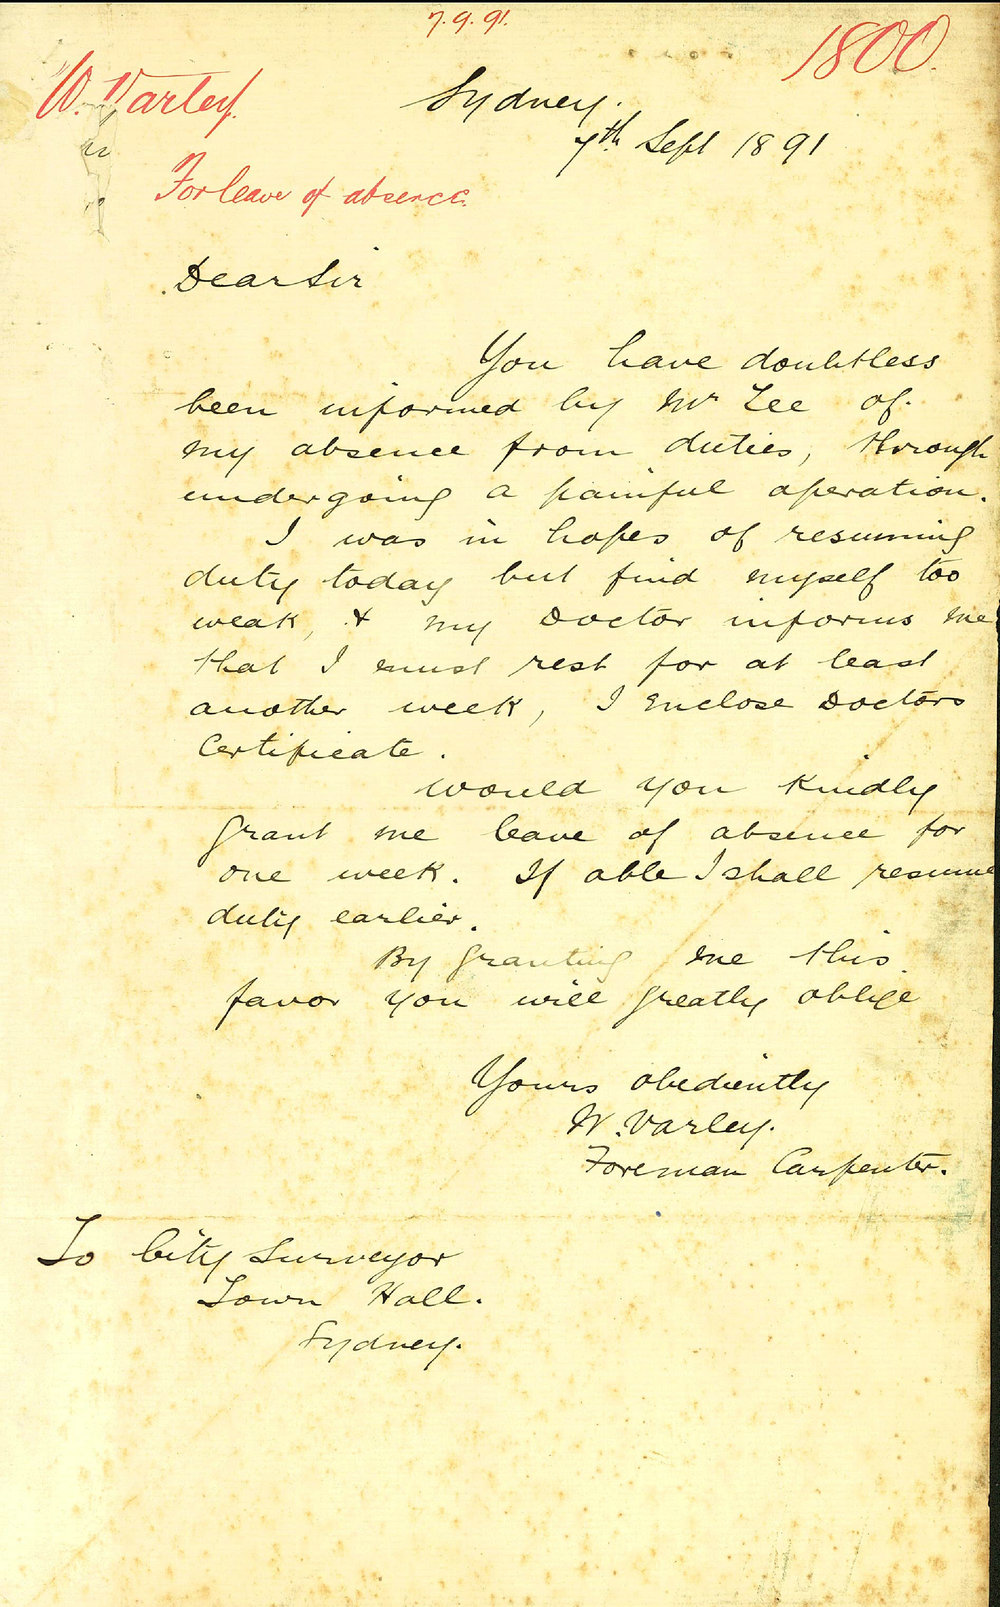 7.9.91.
1800.
W. Varley.
For leave of absence.
Sydney.
7th Sept 1891
Dear Sir
You have doubtless
been informed by Mr Lee of
my absence from duties, through
undergoing a painful operation.
I was in hopes of resuming
duty today but find myself too
weak, & my Doctor informs me
that I must rest for at least
another week, I Enclose Doctors
Certificate.
Would you Kindly
grant me leave of absence for
one week. If able I shall resume
duty earlier.
By granting me this
favor you will greatly oblige
Yours obediently
W. Varley.
Foreman Carpenter.
To City Surveyor
Town Hall.
Sydney.